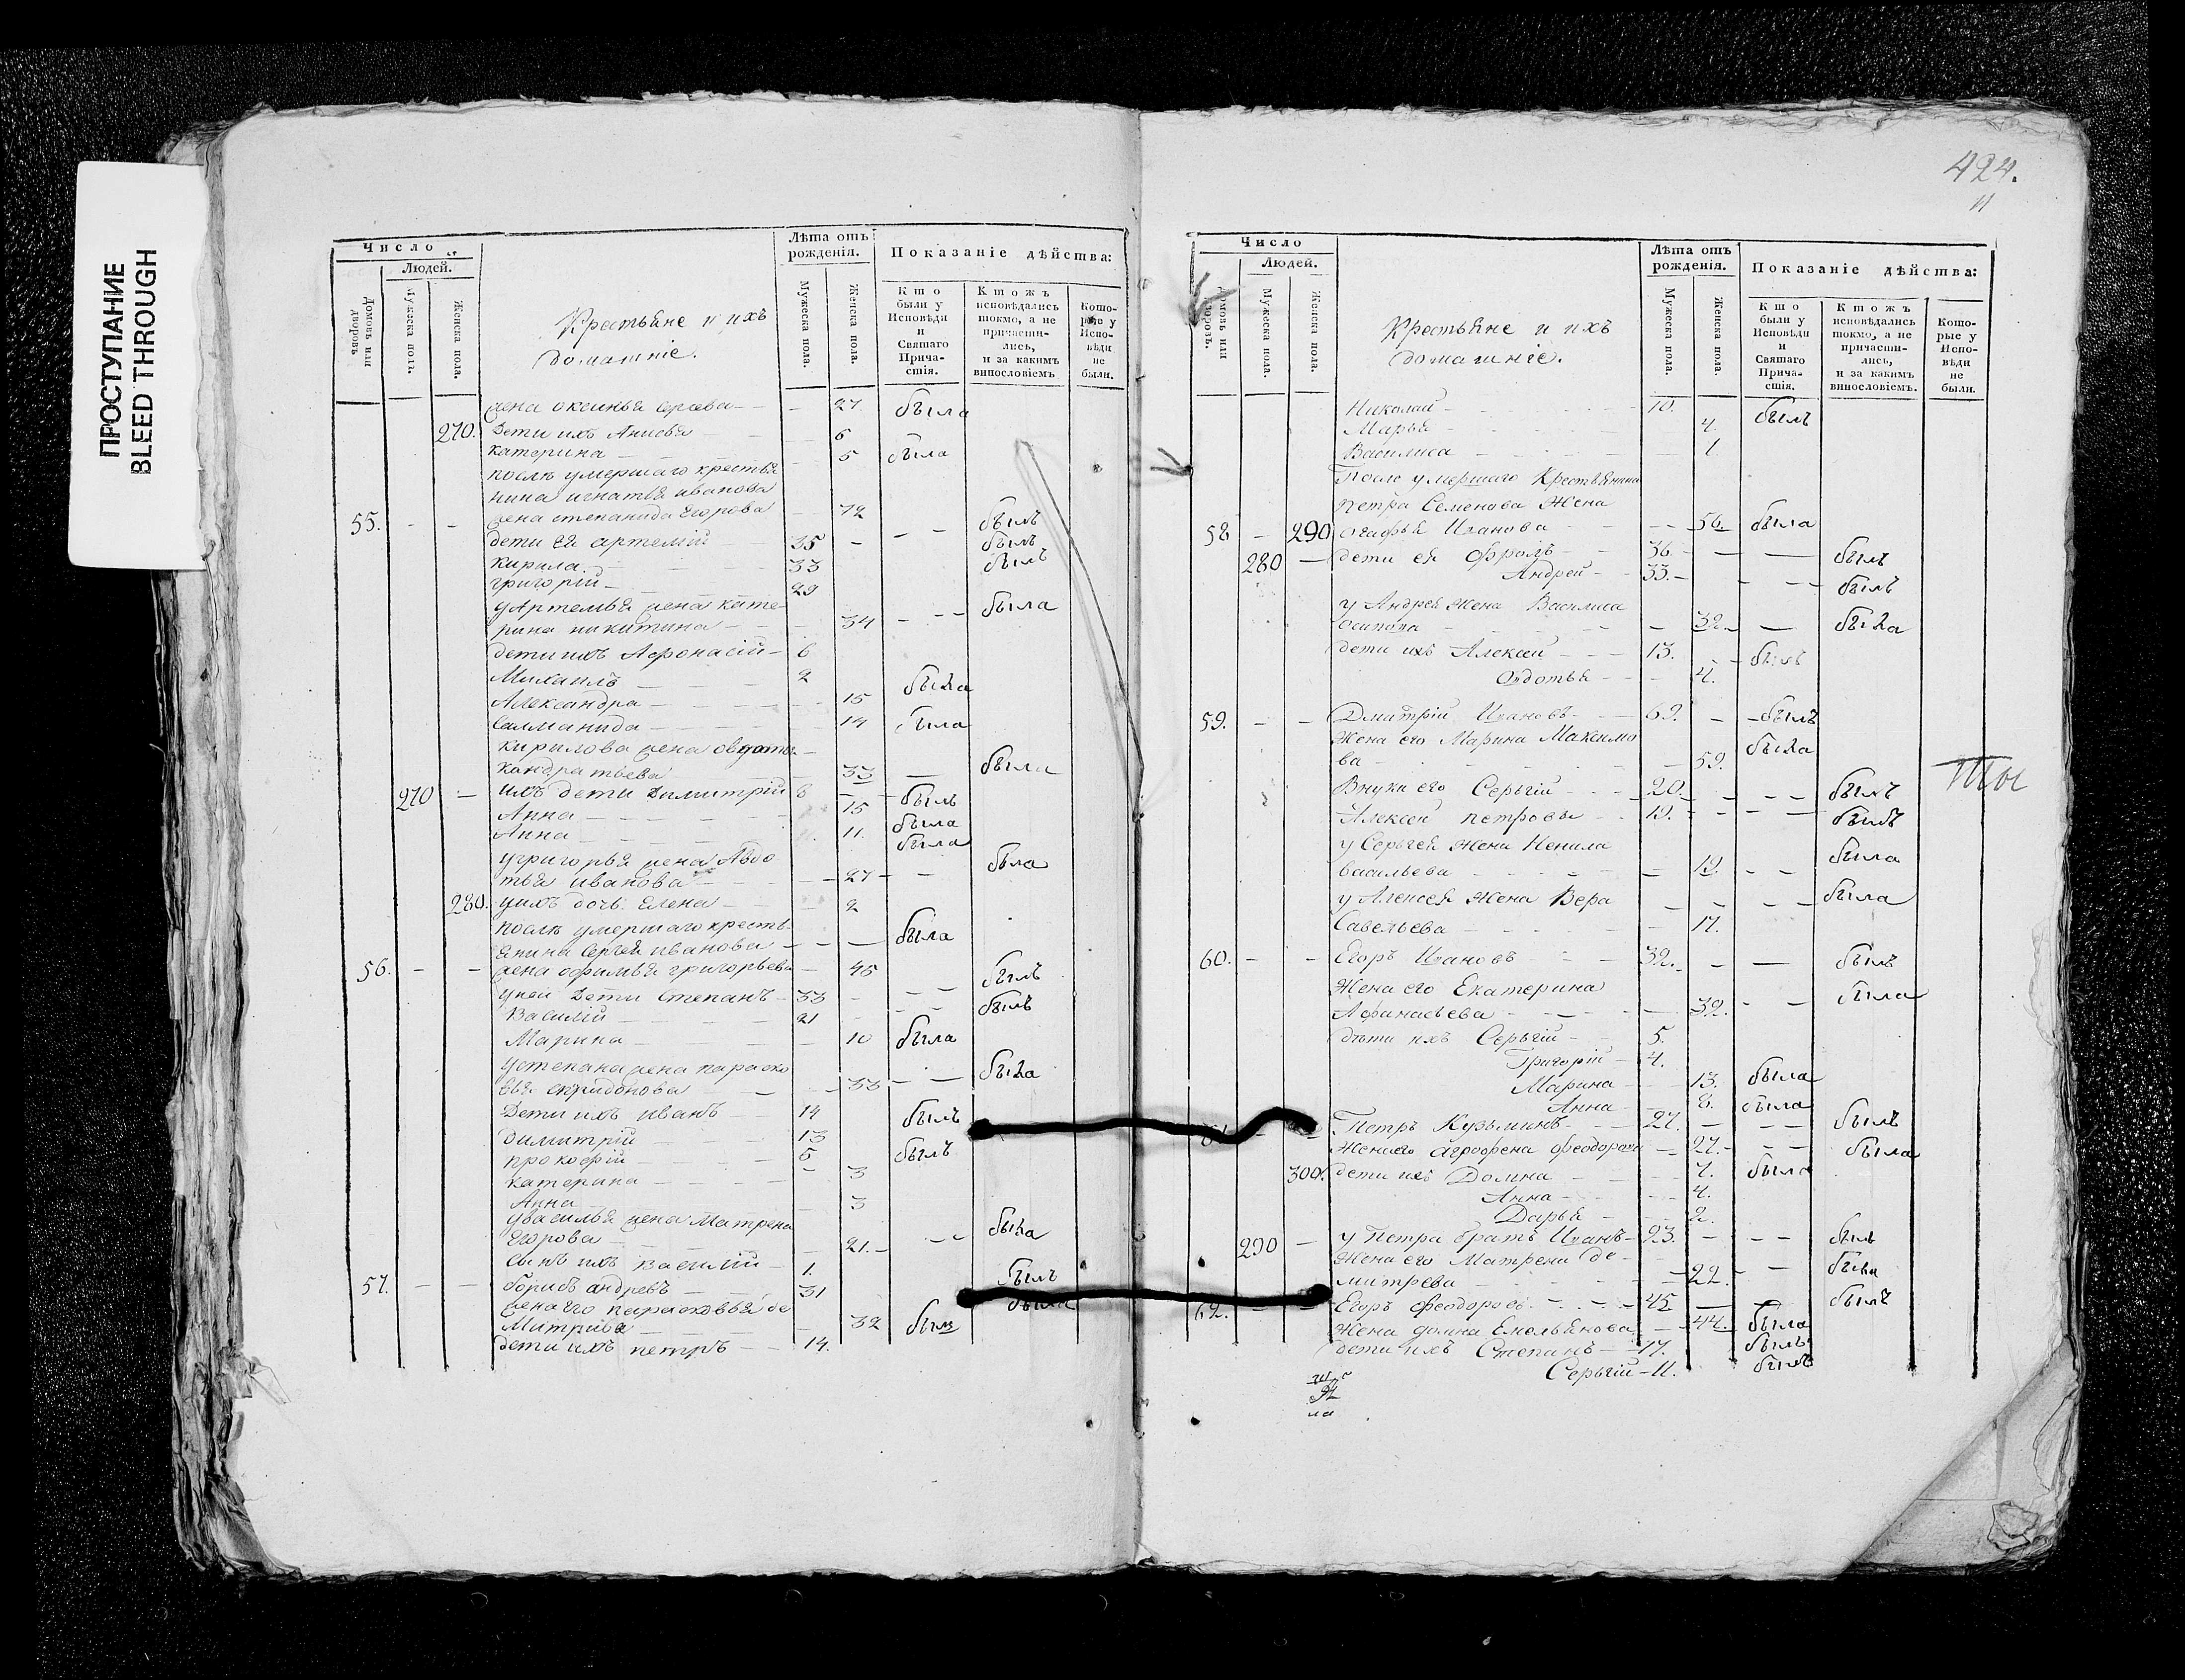 ПРОСТУПАНИЕ
BLEED THROUGH
Число
Людей.
Домовъ или дворовъ
Мужеска полъ.
Женска пола.
Крестьяне и ихъ
домашніе.
Лѣта отъ
рожденія.
Мужеска пола.
Женска пола.
Показаніе дѣйства:
Кто
были у
Исповѣди
и
Святаго
Прича-
стія.
Ктожъ
исповѣдались
токмо, а не
причасти-
лись,
и за какимъ
винословіемъ
Кото-
рые у
Испо-
вѣди
не
были.
жена оксинья 27 была
270. Дети ихъ Анисья 6
катерина 5 была
послѣ умершаго крестья
нина игнатья иванова
55. жена степанида егорова 72
дети ея артемій 35 былъ
Кирила 33 былъ
григорій 29 былъ
у Артемья жена кате-
рина никитина 34 была
дети ихъ Афонасій 6
Михаилъ 2
Александра 15 была
14 была
кирилова жена
кондратьева 33 была
270 ихъ дети Димитрій 6 былъ
Анна 15 была
Анна 11. была
у григорья жена Авдо
тья иванова 27 была
280. у ихъ дочь Елена 2
послѣ умершаго кресть-
янина Сергея иванова
56. жена офимья григорьева 45 была
у ней Дети Степанъ 33 былъ
Василій 21 былъ
Марина 10 была
у степана жена параско
вья спиридонова 33 была
Дети ихъ иванъ 14 былъ
димитрій 13 былъ
прокофій 5
катерина 3
Анна 3
у василья жена Матрена
Егорова 21. была
сынъ ихъ василій 1.
57. борисъ андревъ 31 былъ
жена его парасковья де
митрива 32 была
дети ихъ петръ 14. былъ
424.
Число
Людей.
Домовъ или дворовъ.
Мужеска пола.
Женска пола.
Крестьяне и ихъ
домашніе.
Лѣта отъ
рожденія.
Мужеска пола.
Женска пола.
Показаніе дѣйства:
Кто
были у
Исповѣди
и
Святаго
Прича-
стія.
Ктожъ
исповѣдались
токмо, а не
причасти-
лись,
и за какимъ
винословіемъ.
Кото-
рые у
Испо-
вѣди
не
были.
Николай 10. былъ
Марья 4.
Василиса 1
После умершаго Крестьянина
петра Семенова Жена
58 290 огафья Иванова 56. была
280 дети ея Фролъ 36. былъ
Андрей 33. былъ
у Андрея Жена Василиса
осипова 32. была
дети ихъ Алексей 13. былъ
Овдотья 4.
59. Дмитрій Ивановъ 69. былъ
Жена его Марина Максимо
ва 59. была
Внуки его Серьгій 20. былъ
Алексей петровы 19. былъ
у Серьгея Жена Ненила
васильева 19. была
у Алексея Жена Вера
Савельева 17. была
60. Егоръ Ивановъ 32. былъ
Жена его Екатерина
Афанасьева 32. была
дѣти ихъ Серьгій 5.
Григорій 4.
Марина 13. была
Анна 8. была
61. Петръ Кузьминъ 27. былъ
Жена его аграфена феодорова 27. была
300. дети ихъ Домна 7. была
Анна 4.
Дарья 2.
290 у Петра братъ Иванъ 23. былъ
Жена его Матрена де-
митрева 22. была
62. Егоръ Феодоровъ 45 былъ
Жена Емельянова 44. была
дети ихъ Степанъ 17. былъ
Серьгій 11. былъ